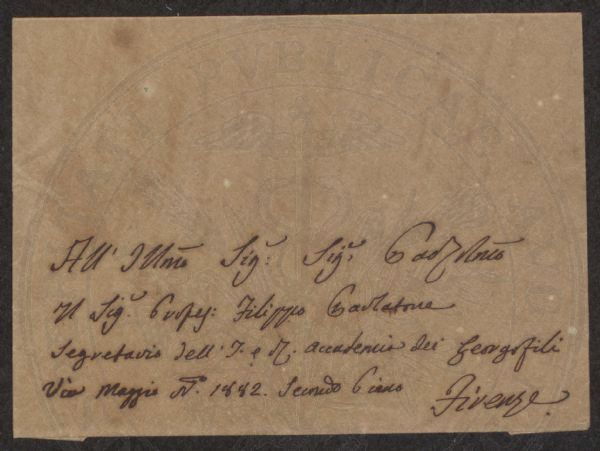 PVBLICAE
All' Illmo Sig.r Sig.r Padn Colmo
Il Sig.r Profes: Filippo Parlatore
Segretario dell' I. e R. Accademia dei Georgofili
Via Maggio N.o 1882. Secondo Piano
Firenze.